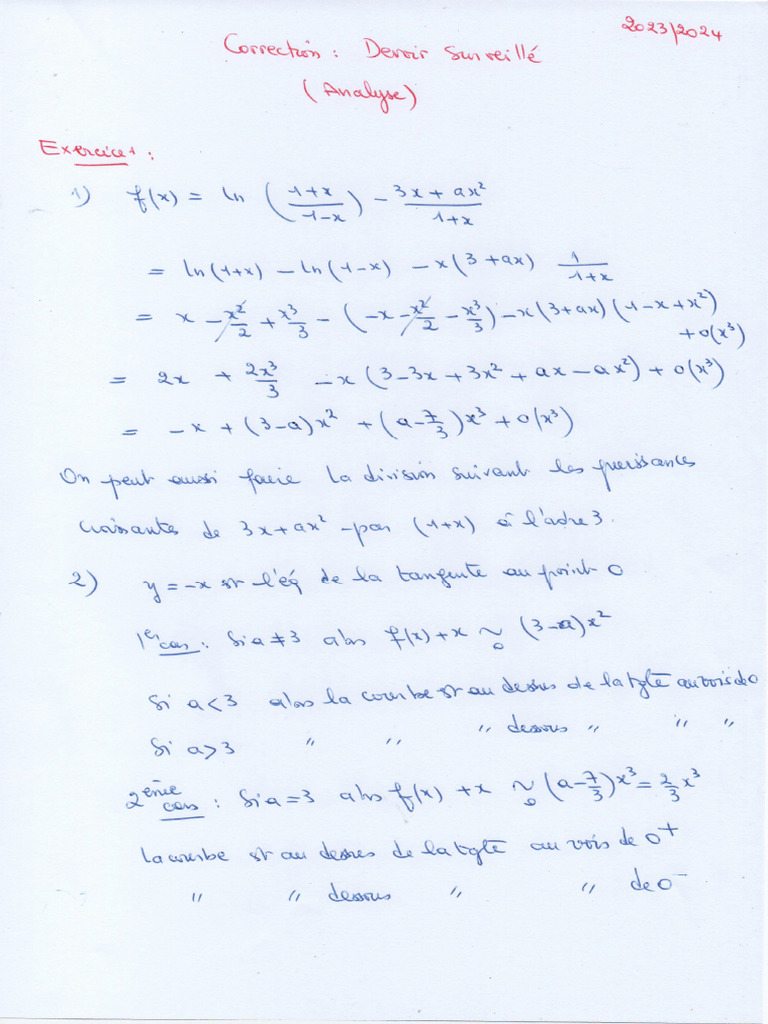 2023/2024
Correction : Devoir Surveillé
(Analyse)
Exercice 1 :
1) f(x) = ln ( (1+x)/(1-x) ) - (3x + ax²)/(1+x)
= ln(1+x) - ln(1-x) - x(3+ax) 1/(1+x)
= x - x²/2 + x³/3 - (-x - x²/2 - x³/3) - x(3+ax)(1-x+x²)
+ o(x³)
= 2x + 2x³/3 - x (3-3x+3x²+ax-ax²) + o(x³)
= -x + (3-a)x² + (a-7/3)x³ + o(x³)
On peut aussi faire la division suivant les puissances
croissantes de 3x+ax² par (1+x) à l'ordre 3.
2) y = -x est l'éq de la tangente au point 0
1er cas : Si a ≠ 3 alors f(x)+x ~₀ (3-a)x²
Si a<3 alors la courbe est au dessus de la tgte au vois de 0
Si a>3 " " " dessous " " "
2ème cas : Si a=3 alors f(x) + x ~₀ (a-7/3)x³ = 2/3 x³
la courbe est au dessus de la tgte au vois de 0⁺
" " dessous " " de 0⁻